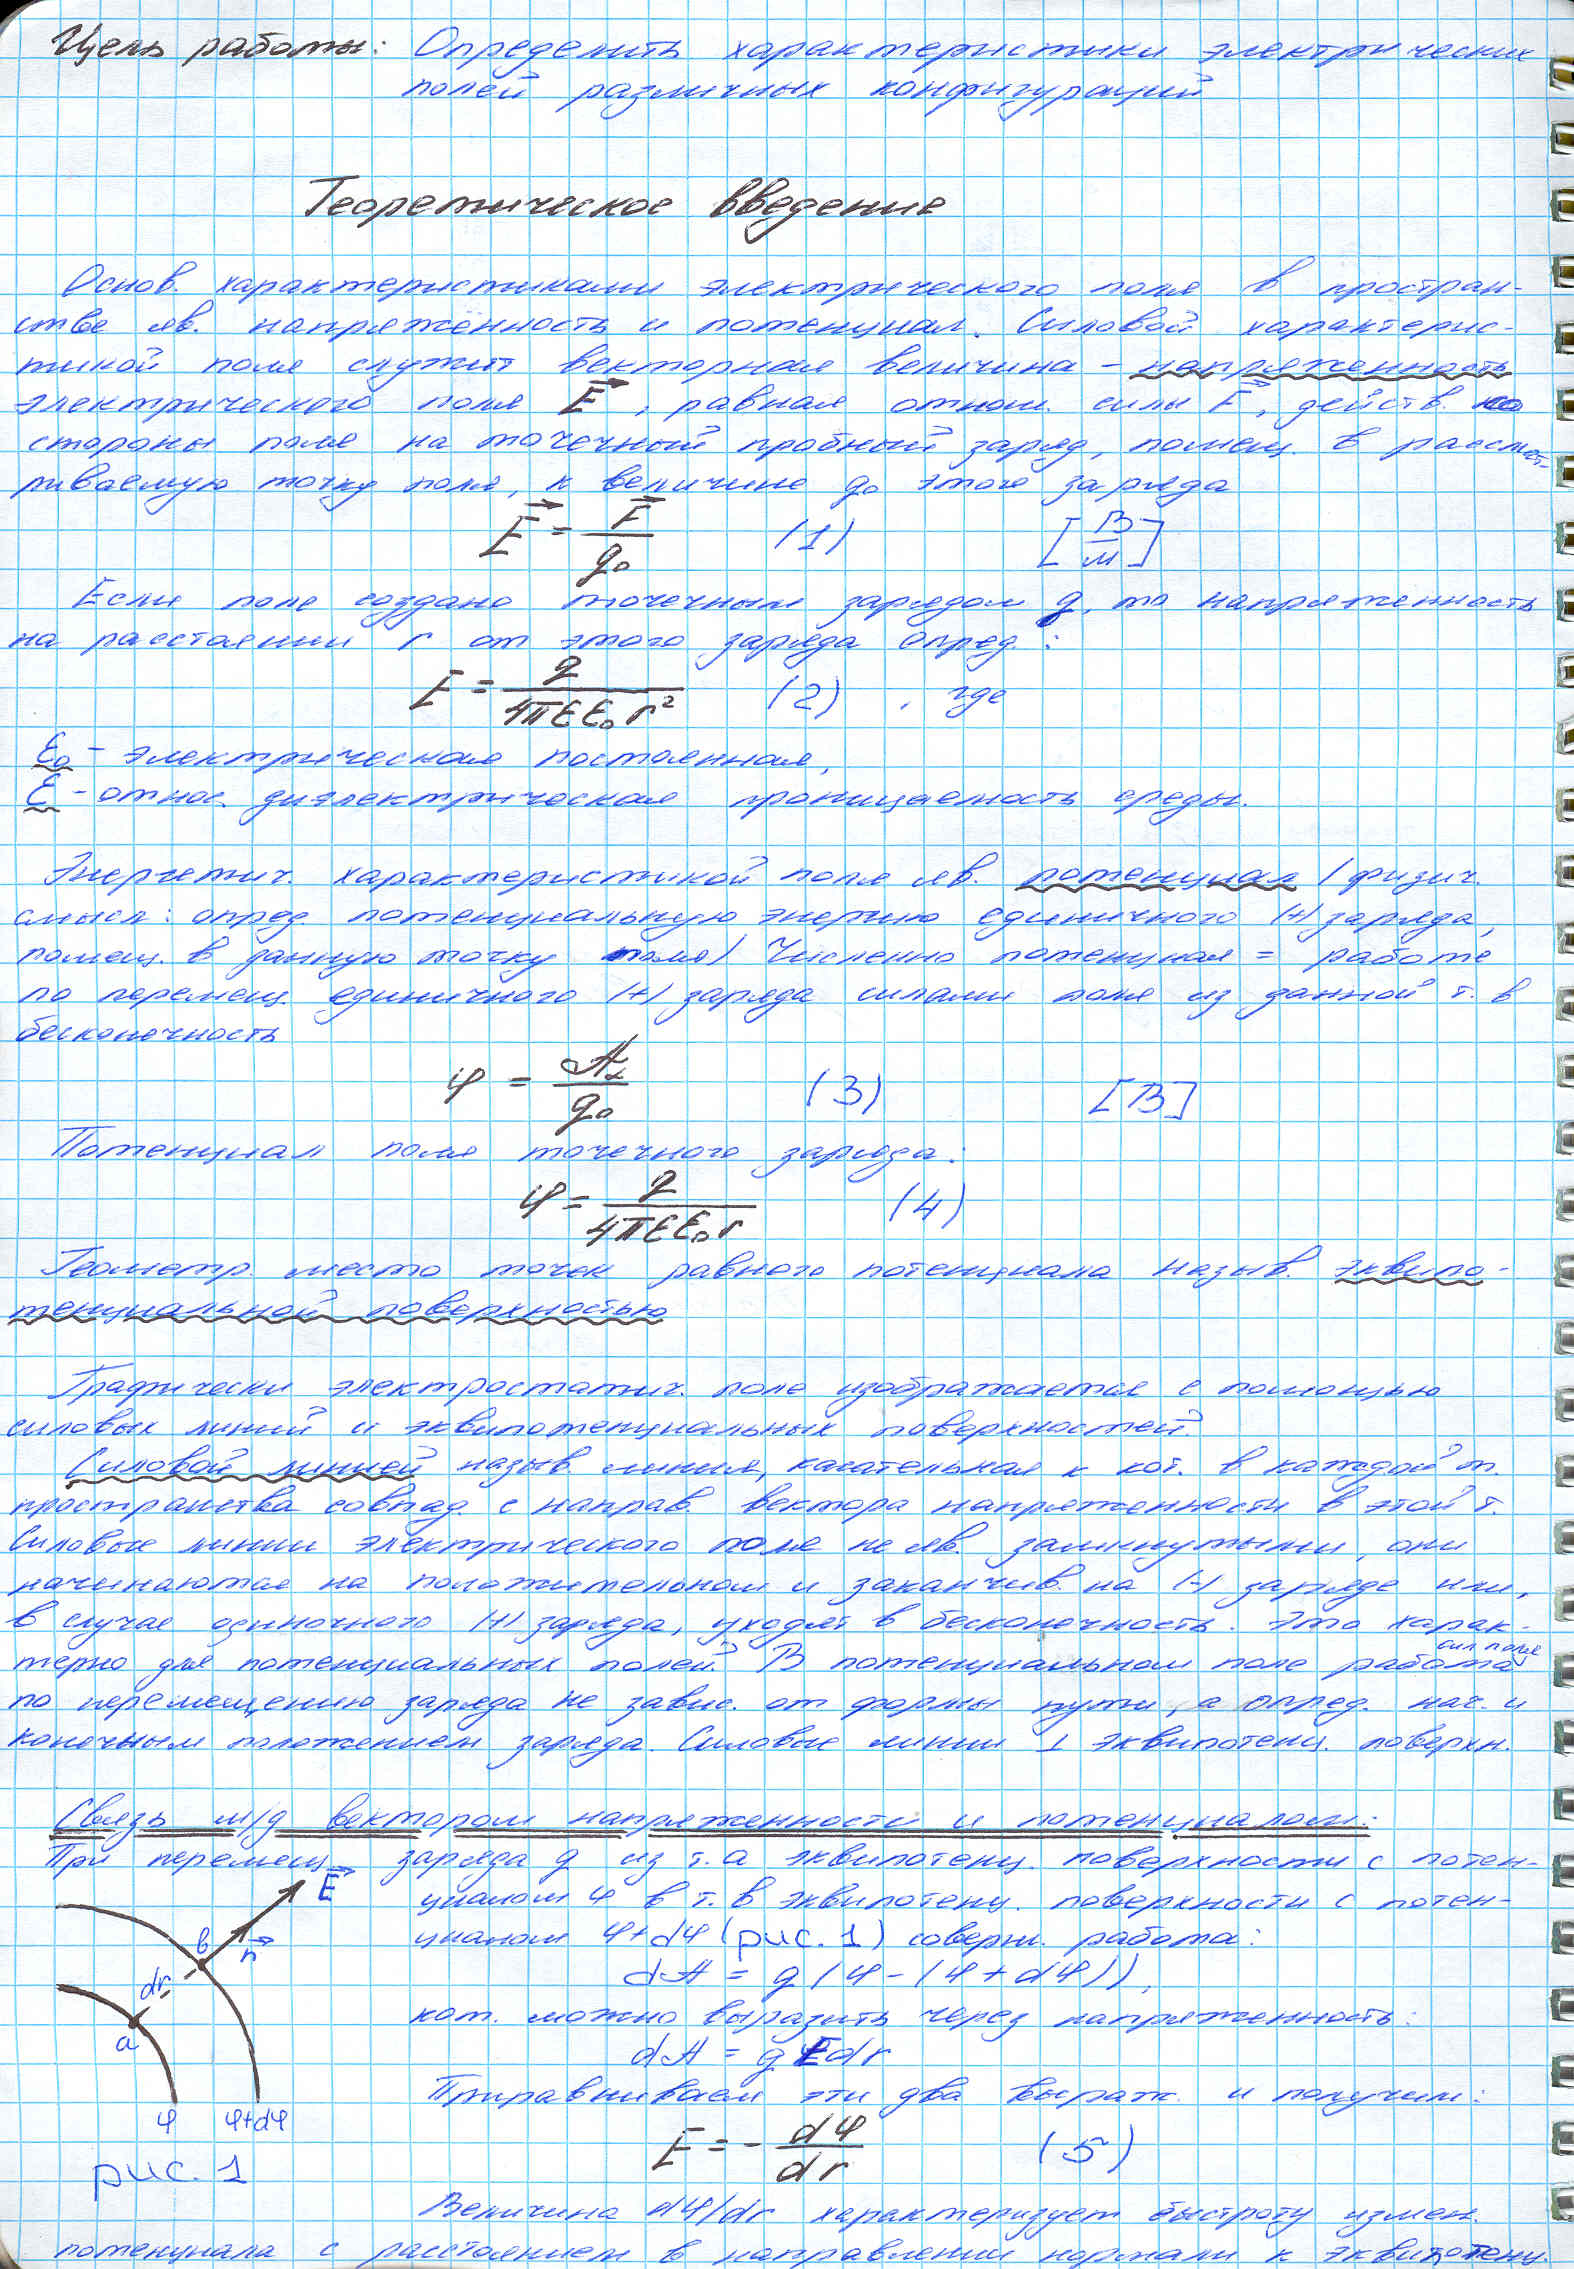 Цель работы: Определить характеристики электрических
полей различных конфигураций
Теоретическое введение
Основ. характеристиками электрического поля в простран-
стве яв. напряжённость и потенциал. Силовой характерис-
тикой поля служит векторная величина – напряженность
электрического поля E⃗, равная отнош. силы F⃗, действ. со
стороны поля на точечный пробный заряд, помещ. в рассмат-
риваемую точку поля, к величине q₀ этого заряда
E⃗ = F⃗/q₀ (1) [В/м]
Если поле создано точечным зарядом q, то напряженность
на расстоянии r от этого заряда опред.:
E = q/4πεε₀r² (2) , где
ε₀ – электрическая постоянная,
ε – относ. диэлектрическая проницаемость среды.
Энергетич. характеристикой поля яв. потенциал (физич.
смысл: опред. потенциальную энергию единичного (+) заряда,
помещ. в данную точку поля) Численно потенциал = работе
по перемещ. единичного (+) заряда силами поля из данной т. в
бесконечность
φ = A∞/q₀ (3) [В]
Потенциал поля точечного заряда:
φ = q/4πεε₀r (4)
Геометр. место точек равного потенциала назыв. эквипо-
тенциальной поверхностью
Графически электростатич. поле изображается с помощью
силовых линий и эквипотенциальных поверхностей.
Силовой линией назыв. линия, касательная к кот. в каждой т.
пространства совпад. с направ. вектора напряженности в этой т.
Силовые линии электрического поля не яв. замкнутыми, они
начинаются на положительном и заканчив. на (-) заряде или,
в случае одиночного (+) заряда, уходят в бесконечность. Это харак-
терно для потенциальных полей. В потенциальном поле работа сил поля
по перемещению заряда не завис. от формы пути, а опред. нач. и
конечным положением заряда. Силовые линии ⊥ эквипотенц. поверхн.
Связь м/д вектором напряженности и потенциалом:
При перемещ. заряда q из т. а эквипотенц. поверхности с потен-
циалом φ в т. в эквипотенц. поверхности с потен-
циалом φ+dφ (рис. 1) соверш. работа:
dA = q(φ-(φ+dφ)),
кот. можно выразить через напряженность:
dA = qEdr
Приравниваем эти два выраж. и получим:
E = - dφ/dr (5)
E⃗
n⃗
в
dr
а
φ φ+dφ
рис. 1
Величина dφ/dr характеризует быстроту измен.
потенциала с расстоянием в направлении нормали к эквипотенц.